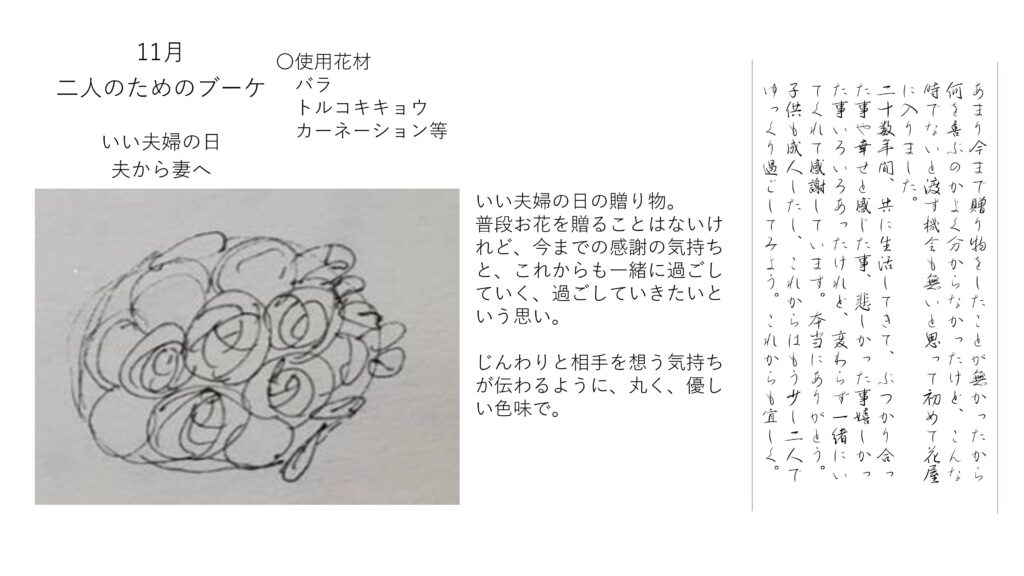 11月
二人のためのブーケ
いい夫婦の日
夫から妻へ
〇使用花材
バラ
トルコキキョウ
カーネーション等
いい夫婦の日の贈り物。
普段お花を贈ることはないけ
れど、今までの感謝の気持ち
と、これからも一緒に過ごし
ていく、過ごしていきたいと
いう思い。
じんわりと相手を想う気持ち
が伝わるように、丸く、優し
い色味で。
あまり今まで贈り物をしたことが無かったから
何を喜ぶのかよく分からなかったけど、こんな
時でないと渡す機会も無いと思って初めて花屋
に入りました。
二十数年間、共に生活してきて、ぶつかり合っ
た事や幸せと感じた事、悲しかった事嬉しかっ
た事いろいろあったけれど、変わらず一緒にい
てくれて感謝しています。本当にありがとう。
子供も成人したし、これからはもう少し二人で
ゆっくり過ごしてみよう。これからも宜しく。